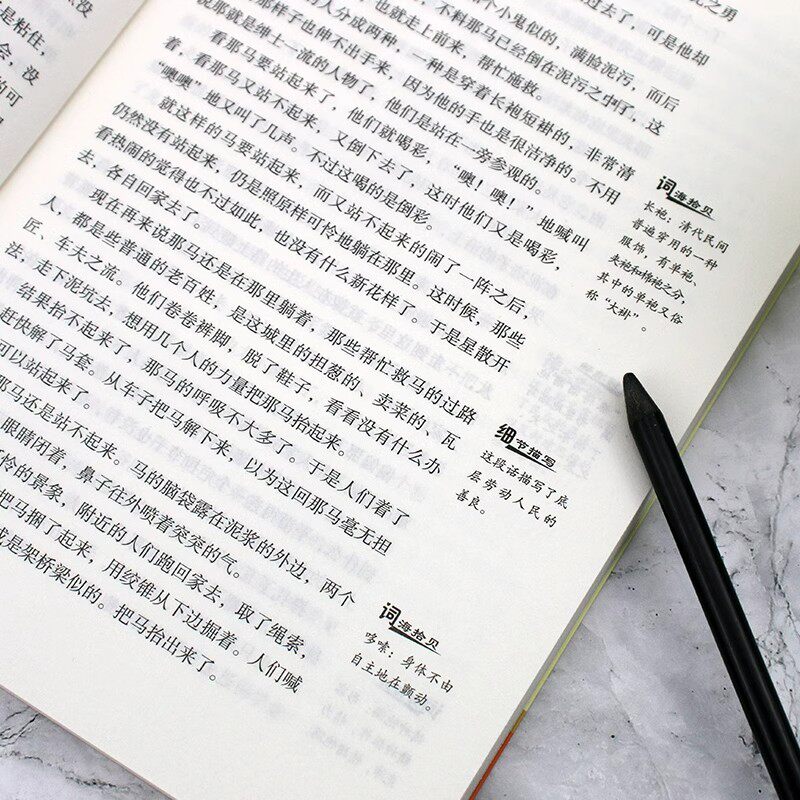 是粘住，
会，没
的可
过去了，可是他却
个小鬼似的，满脸泥污，而后
，不料那马已经倒在泥污之中了，这
也就走上前来，帮忙施救。
的人分成两种，一种是穿着长袍短褂的，非常清
那样子也伸不出手来，因为他的手也是很洁净的。不用
说那就是绅士一流的人物了，他们是站在一旁参观的。
看那马要站起来了，他们就喝彩，“噢！噢！”地喊叫
着，看那马又站不起来，又倒下去了，这时他们又是喝彩，
“噢噢”地又叫了几声。不过这喝的是倒彩。
就这样的马要站起来，而又站不起来的闹了一阵之后，
仍然没有站起来，仍是照原样可怜地躺在那里。这时候，那些
看热闹的觉得也不过如此，也没有什么新花样了。于是星散开
去，各自回家去了。
现在再来说那马还是在那里躺着，那些帮忙救马的过路
人，都是些普通的老百姓，是这城里的担葱的、卖菜的、瓦
匠、车夫之流。他们卷卷裤脚，脱了鞋子，看看没有什么办
法，走下泥坑去，想用几个人的力量把那马抬起来。
结果抬不起来了，那马的呼吸不大多了。于是人们着了
赶快解了马套。从车子把马解下来，以为这回那马毫无担
可以站起来了。
那马还是站不起来。马的脑袋露在泥浆的外边，两个
眼睛闭着，鼻子往外喷着突突的气。
怜的景象，附近的人们跑回家去，取了绳索，
把马捆了起来，用绞锥从下边掘着。人们喊
就是架桥梁似的。把马抬出来了。
词海拾贝
长袍：清代民间
普遍穿用的一种
服饰，有单袍、
夹袍和棉袍之分，
其中的单袍又俗
称“大褂”。
细节描写
这段话描写了底
层劳动人民的
善良。
词海拾贝
哆嗦：身体不由
自主地在颤动。